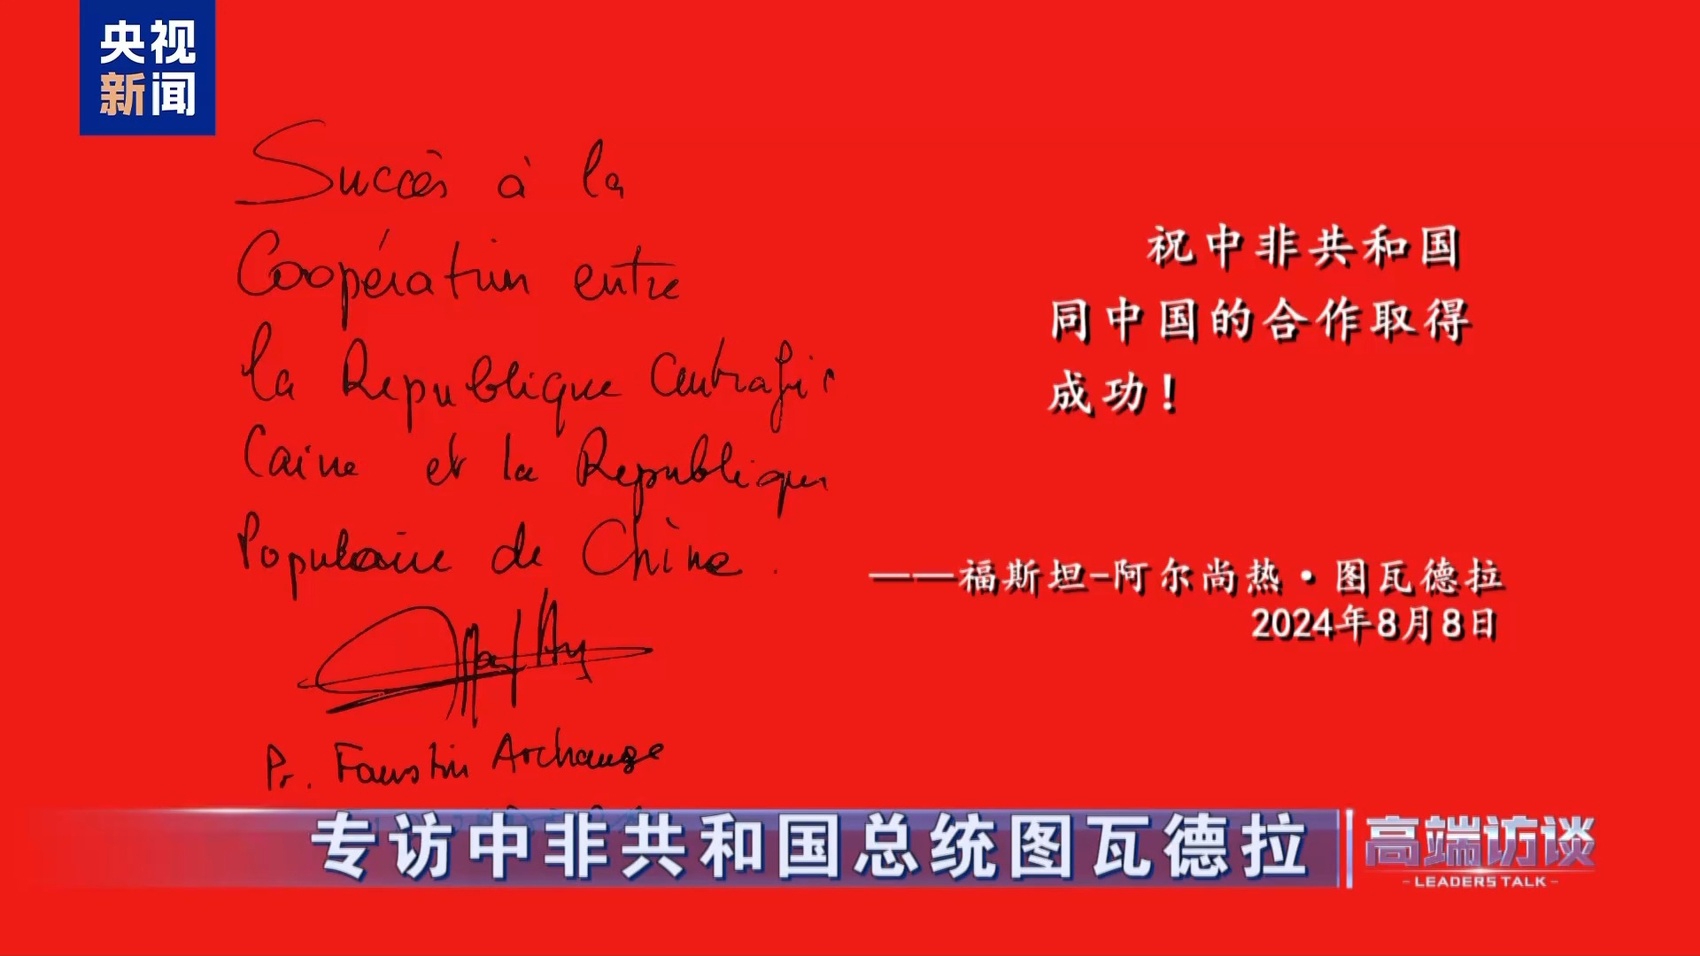 央视
新闻
Succès à la
Coopération entre
la Republique Centrafri
Caine et la Republique
Populaire de Chine.
Pr. Faustin Archange
祝中非共和国
同中国的合作取得
成功！
——福斯坦-阿尔尚热·图瓦德拉
2024年8月8日
专访中非共和国总统图瓦德拉
高端访谈
-LEADERS TALK-